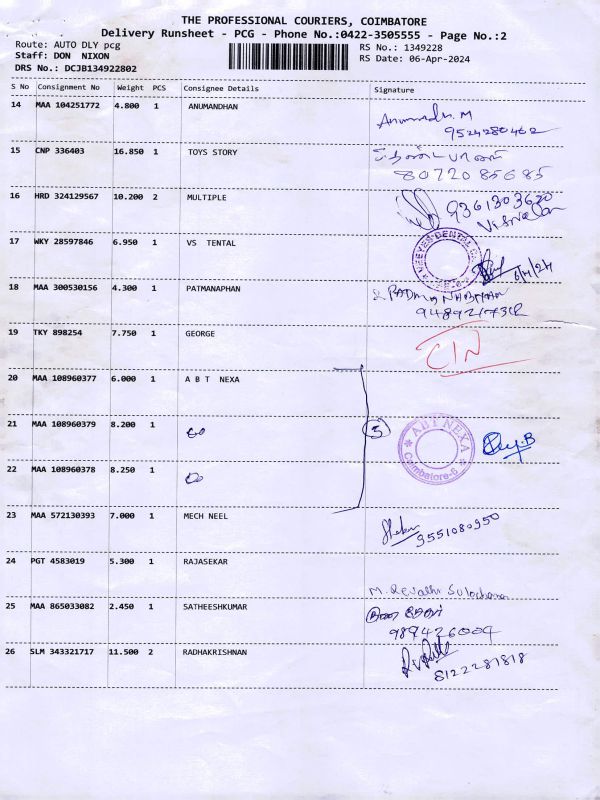 THE PROFESSIONAL COURIERS, COIMBATORE
Delivery Runsheet - PCG - Phone No.:0422-3505555 - Page No.:2
Route: AUTO DLY pcg RS No.: 1349228
Staff: DON NIXON RS Date: 06-Apr-2024
DRS No.: DCJB134922802
S No Consignment No Weight PCS Consignee Details Signature
14 MAA 104251772 4.800 1 ANUMANDHAN
9524280462
15 CNP 336403 16.850 1 TOYS STORY
8072085685
16 HRD 324129567 10.200 2 MULTIPLE
9361303620
17 WKY 28597846 6.950 1 VS TENTAL
6/4/24
18 MAA 300530156 4.300 1 PATMANAPHAN
19 TKY 898254 7.750 1 GEORGE
20 MAA 108960377 6.000 1 A B T NEXA
21 MAA 108960379 8.200 1 3
ABT NEXA
Coimbatore-6
22 MAA 108960378 8.250 1
23 MAA 572130393 7.000 1 MECH NEEL
9551080950
24 PGT 4583019 5.300 1 RAJASEKAR
M. Revathi Sulochana
25 MAA 865033082 2.450 1 SATHEESHKUMAR
26 SLM 343321717 11.500 2 RADHAKRISHNAN
8122281818